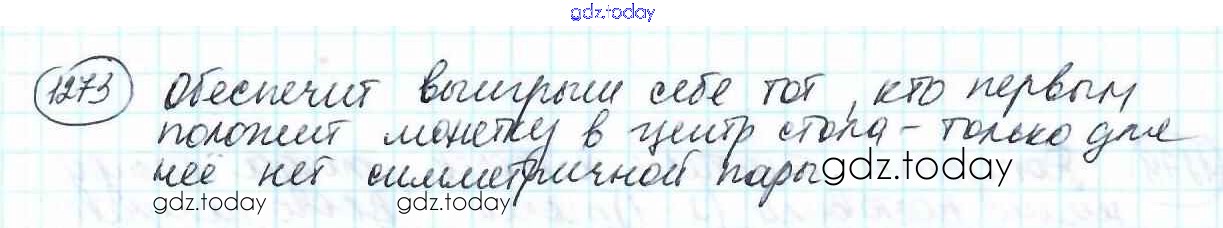 gdz.today
1273 Обеспечит выигрыш себе тот, кто первым
положит монетку в центр стола – только для
неё нет симметричной пары
gdz.today
gdz.today gdz.today